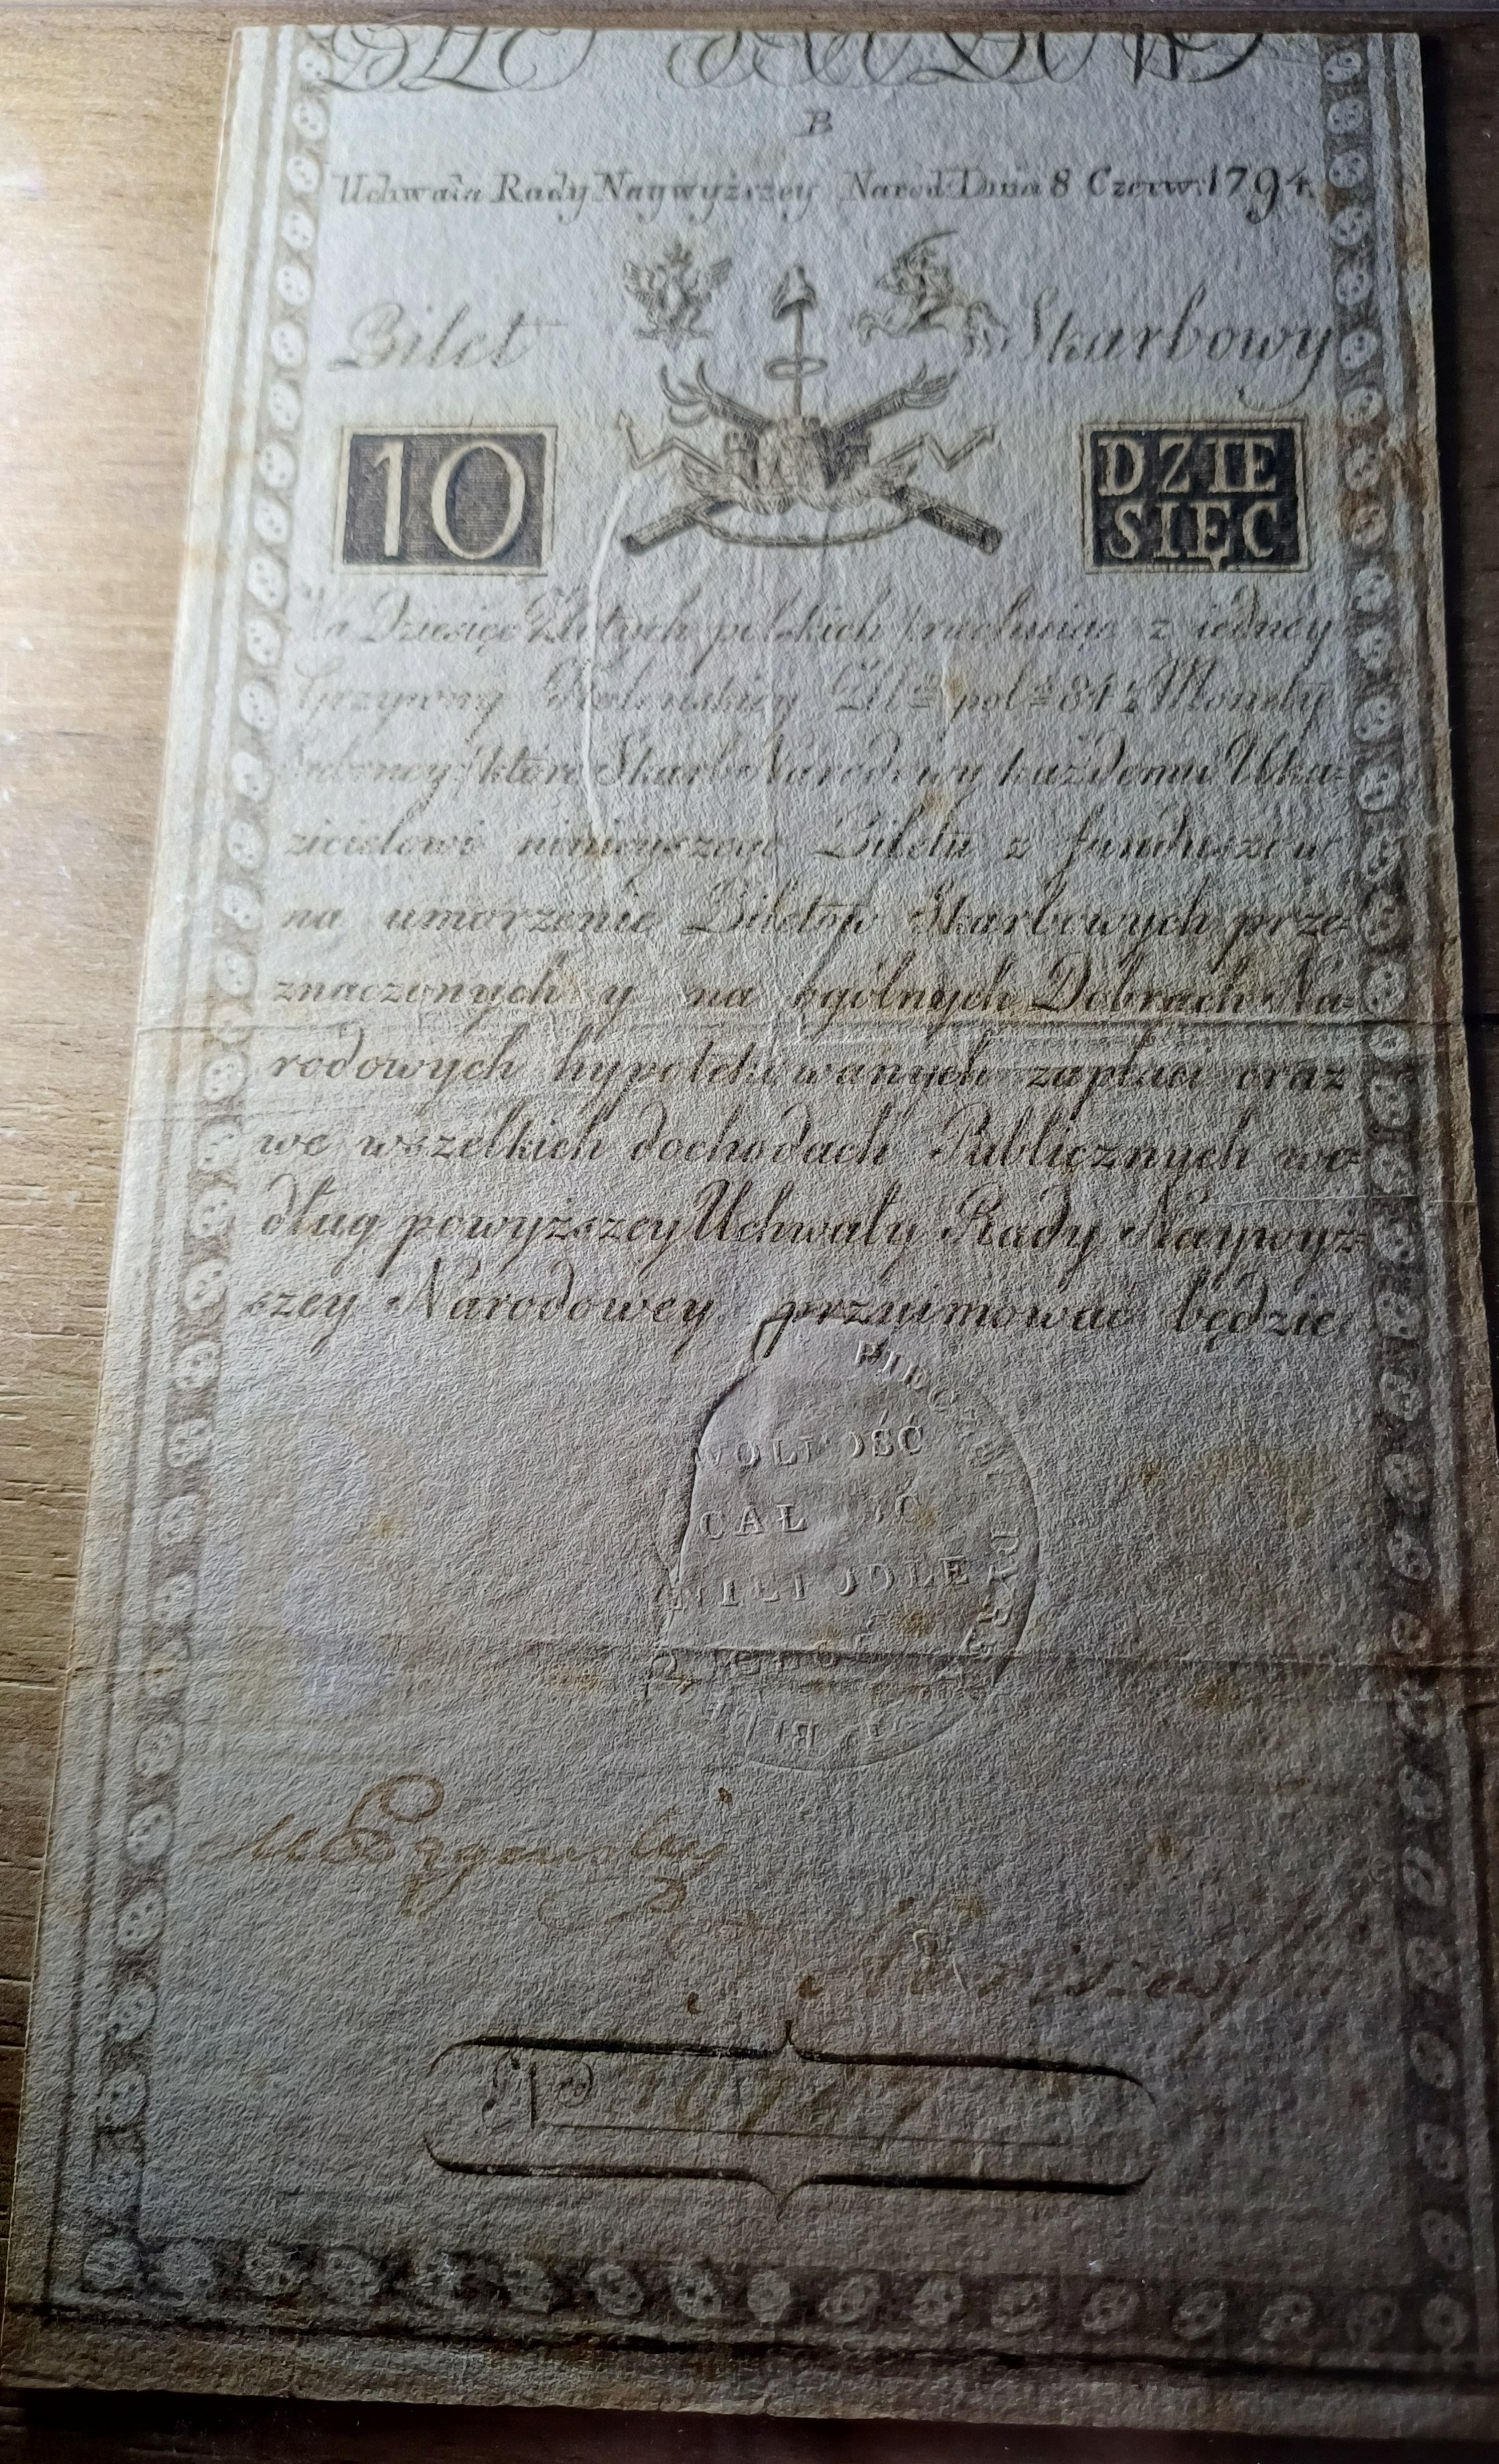 B
Uchwała Rady Naywyższey Narod: Dnia 8 Czerw: 1794.
Bilet Skarbowy
10 DZIE
SIĘC
Na Dziesięć Złotych polskich rachuiąc z iedney
Grzywny Kolonskiey Zł: pol: 84½ Monety
Srebrney, które Skarb Narodowy każdemu Uka=
zicielowi ninieyszego Biletu z funduszow
na umorzenie Biletów Skarbowych prze=
znaczonych y na ogólnych Dobrach Na=
rodowych hypotekowanych zapłaci oraz
we wszelkich dochodach Publicznych we=
dług powyższey Uchwały Rady Naywyż=
szey Narodowey przyimować będzie
WOLNOŚĆ
CAŁ